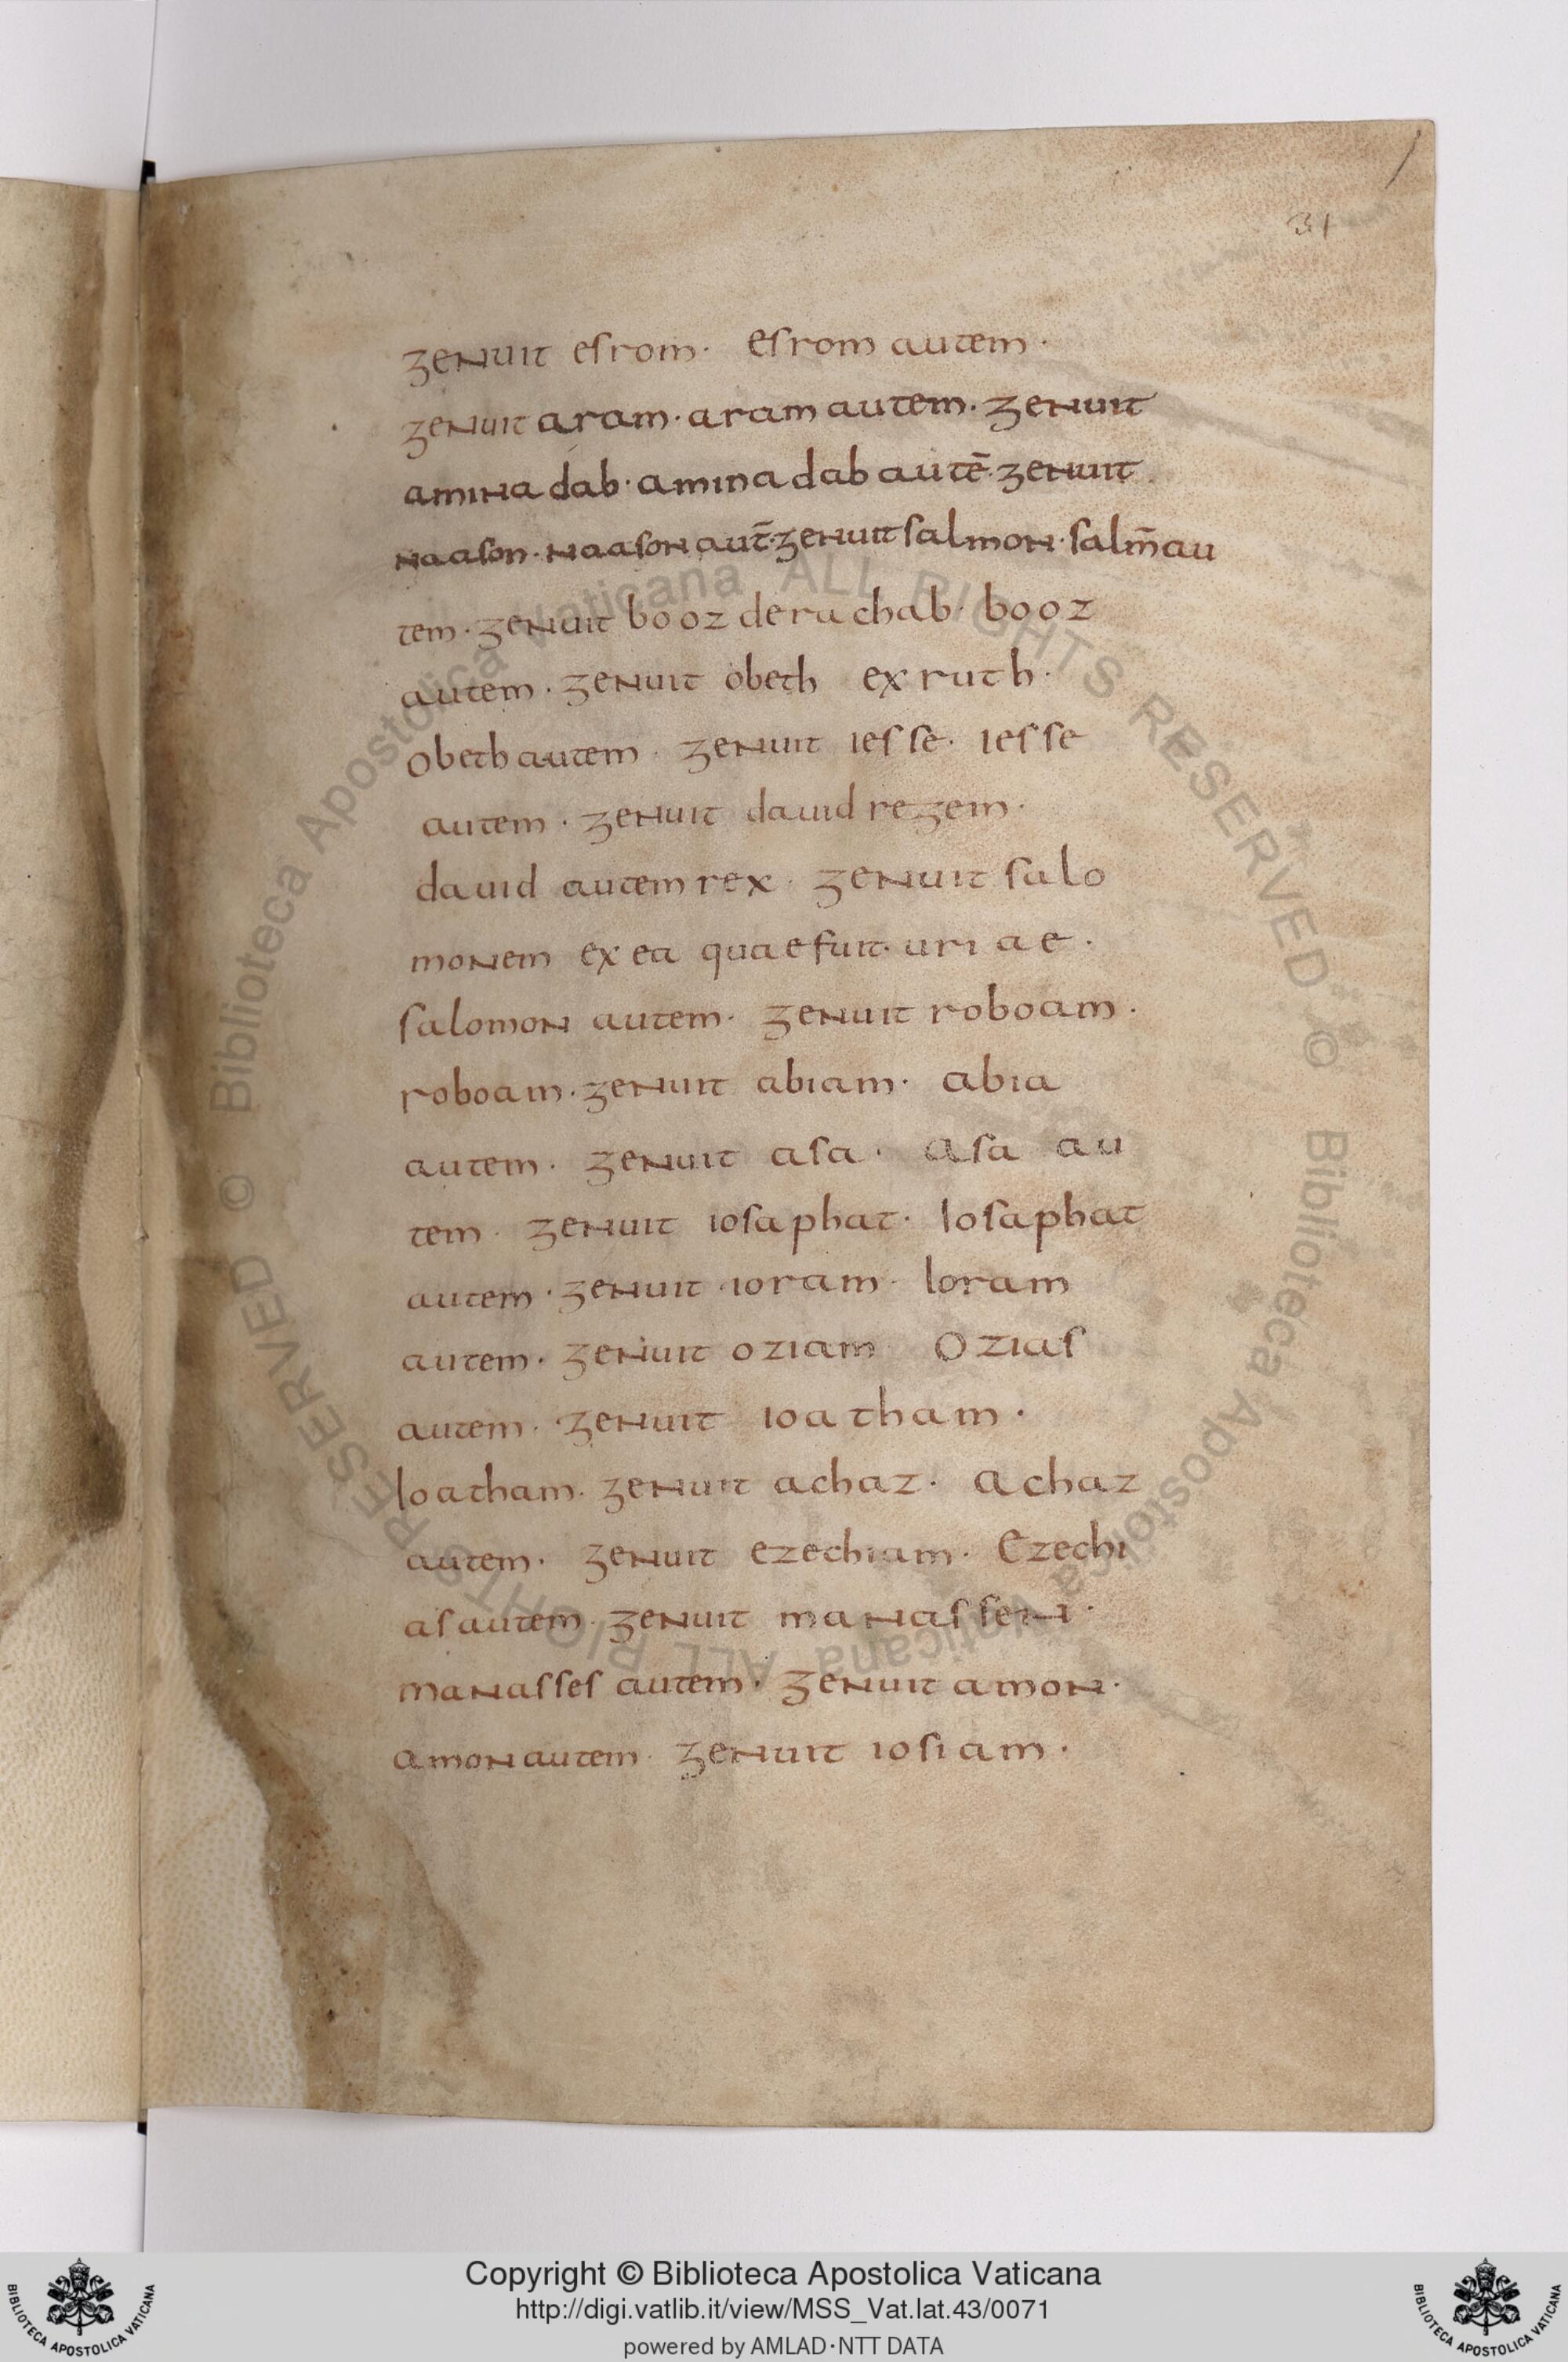 31
genuit esrom· Esrom autem·
genuit aram· aram autem· genuit
aminadab· aminadab autē· genuit
naason· naason aut̄· genuit salmon· salm̄ au
tem· genuit booz de rachab· booz
autem· genuit obeth ex ruth·
Obeth autem· genuit iesse· iesse
autem· genuit dauid regem·
dauid autem rex· genuit salo
monem ex ea quae fuit· uriae·
salomon autem· genuit roboam·
roboam· genuit abiam· Abia
autem· genuit asa· Asa au
tem· genuit iosaphat· Iosaphat
autem· genuit ioram· Ioram
autem· genuit oziam Ozias
autem· genuit ioatham·
Ioatham· genuit achaz· Achaz
autem· genuit ezechiam· Ezechi
as autem· genuit manassen·
manasses autem· genuit amon·
amon autem· genuit iosiam·
© Biblioteca Apostolica Vaticana ALL RIGHTS RESERVED © Biblioteca Apostolica Vaticana ALL RIGHTS RESERVED
Copyright © Biblioteca Apostolica Vaticana
http://digi.vatlib.it/view/MSS_Vat.lat.43/0071
powered by AMLAD·NTT DATA
BIBLIOTECA APOSTOLICA VATICANA
BIBLIOTECA APOSTOLICA VATICANA